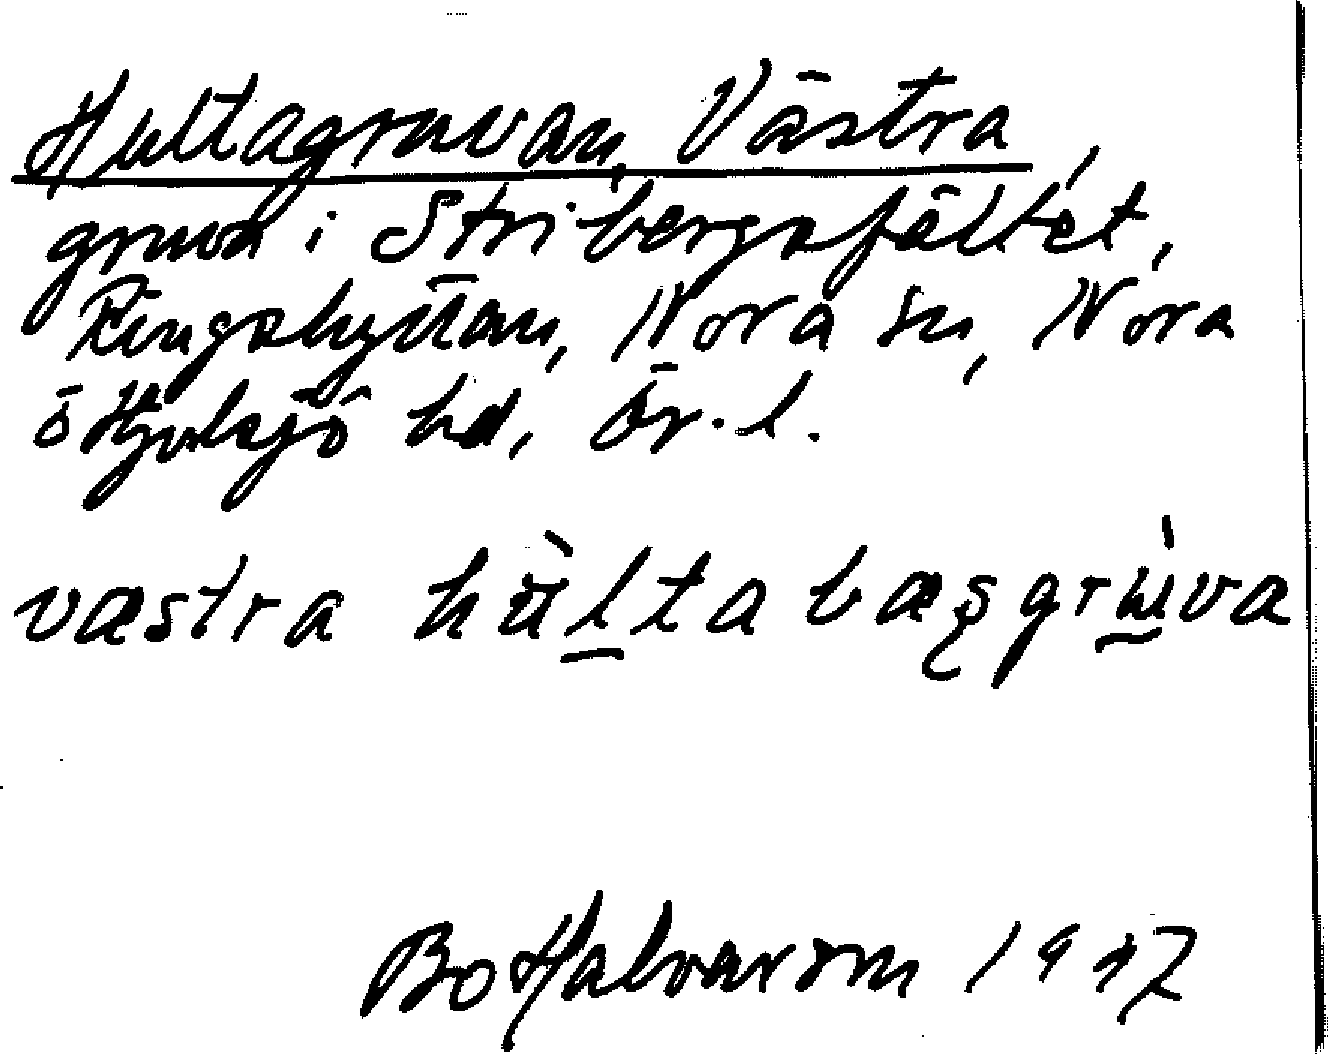 Hultagruvan, Västra,
gruva i Stribergsfältet,
Ringshyttan, Nora sn, Nora
o Hjulsjö hd, Ör. l.
västra hùlta bæșgrùva
Bo Halvarson 19